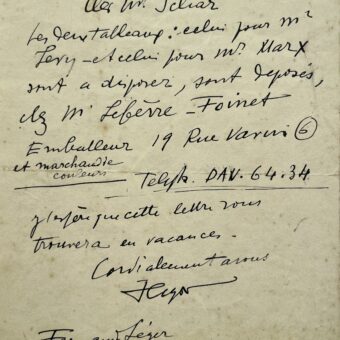 cher Mr.
Les deux tableaux : celui pour Mr
Levy - et celui pour Mr. Marx
sont a disposer, sont deposés,
chez Mr Lefèvre - Foinet
Emballeur 19 Rue Vavin (6)
et marchandie
couleurs
Teleph. DAV. 64.34
J'espère que cette lettre vous
trouvera en vacances -
Cordialement a vous
FLeger
Fernand Léger